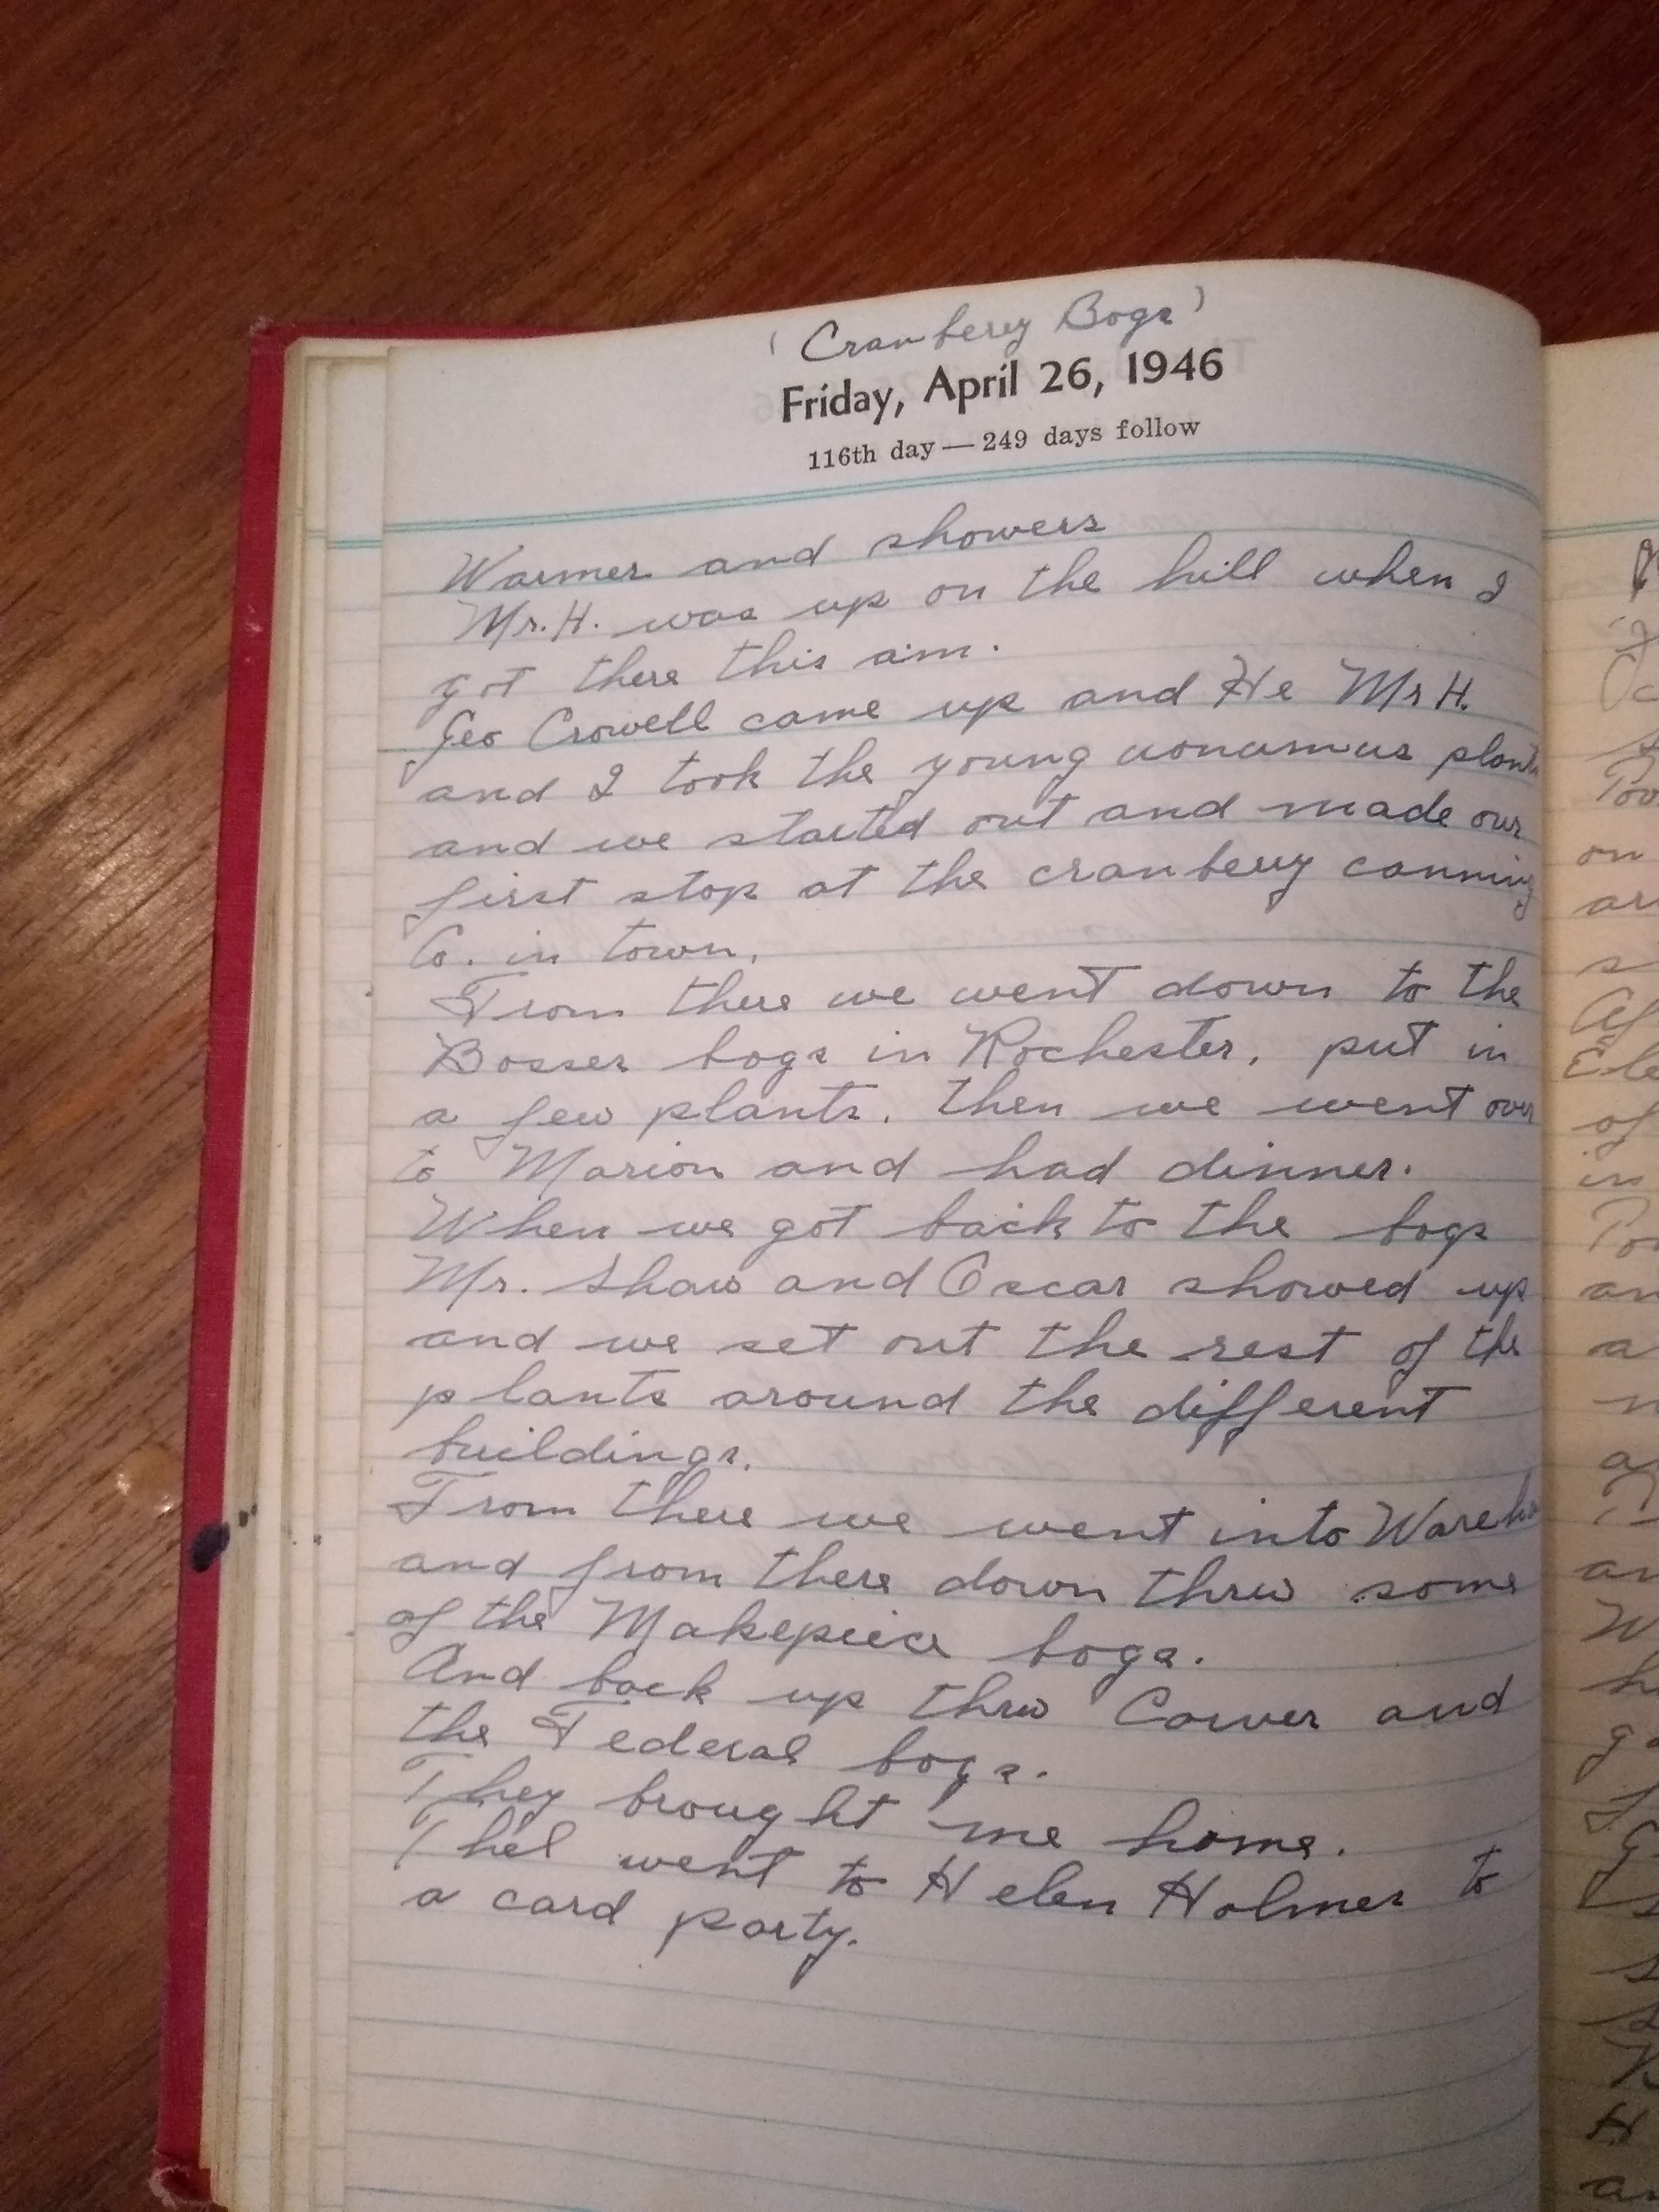 (Cranberry Bogs)
Friday, April 26, 1946
116th day — 249 days follow
Warmer and showers
Mr. H. was up on the hill when I
got there this a.m.
Geo Crowell came up and He Mr H.
and I took the young uonumus plants
and we started out and made our
first stop at the cranberry canning
Co. in town.
From there we went down to the
Bosser bogs in Rochester, put in
a few plants. Then we went over
to Marion and had dinner.
When we got back to the bogs
Mr. Shaw and Oscar showed up
and we set out the rest of the
plants around the different
buildings.
From there we went into Wareh
and from there down thru some
of the Makepiece bogs.
And back up thru Carver and
the Federal bogs.
They brought me home.
Thel went to Helen Holmes to
a card party.